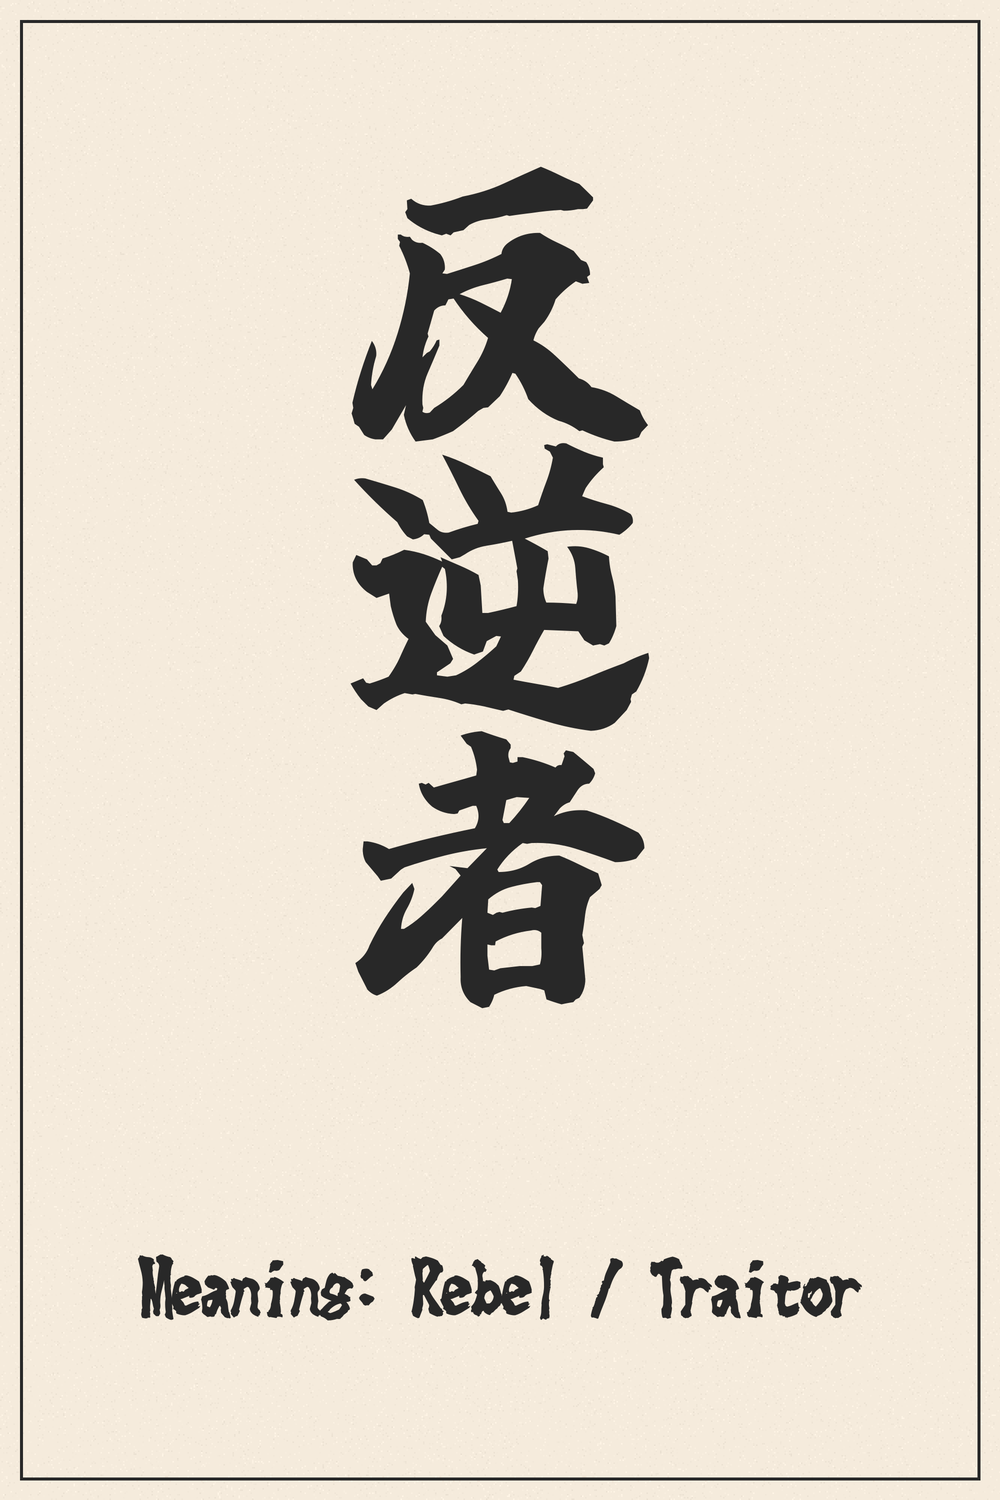 反逆者
Meaning: Rebel / Traitor